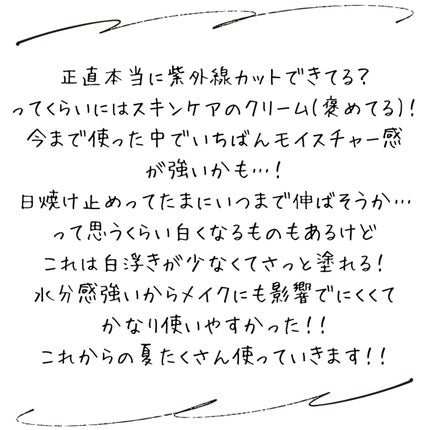 正直本当に紫外線カットできてる?
ってくらいにはスキンケアのクリーム(褒めてる)!
今まで使った中でいちばんモイスチャー感
が強いかも…!
日焼け止めってたまにいつまで伸ばそうか…
って思うくらい白くなるものもあるけど
これは白浮きが少なくてさっと塗れる!
水分感強いからメイクにも影響でにくくて
かなり使いやすかった!!
これからの夏たくさん使っていきます!!